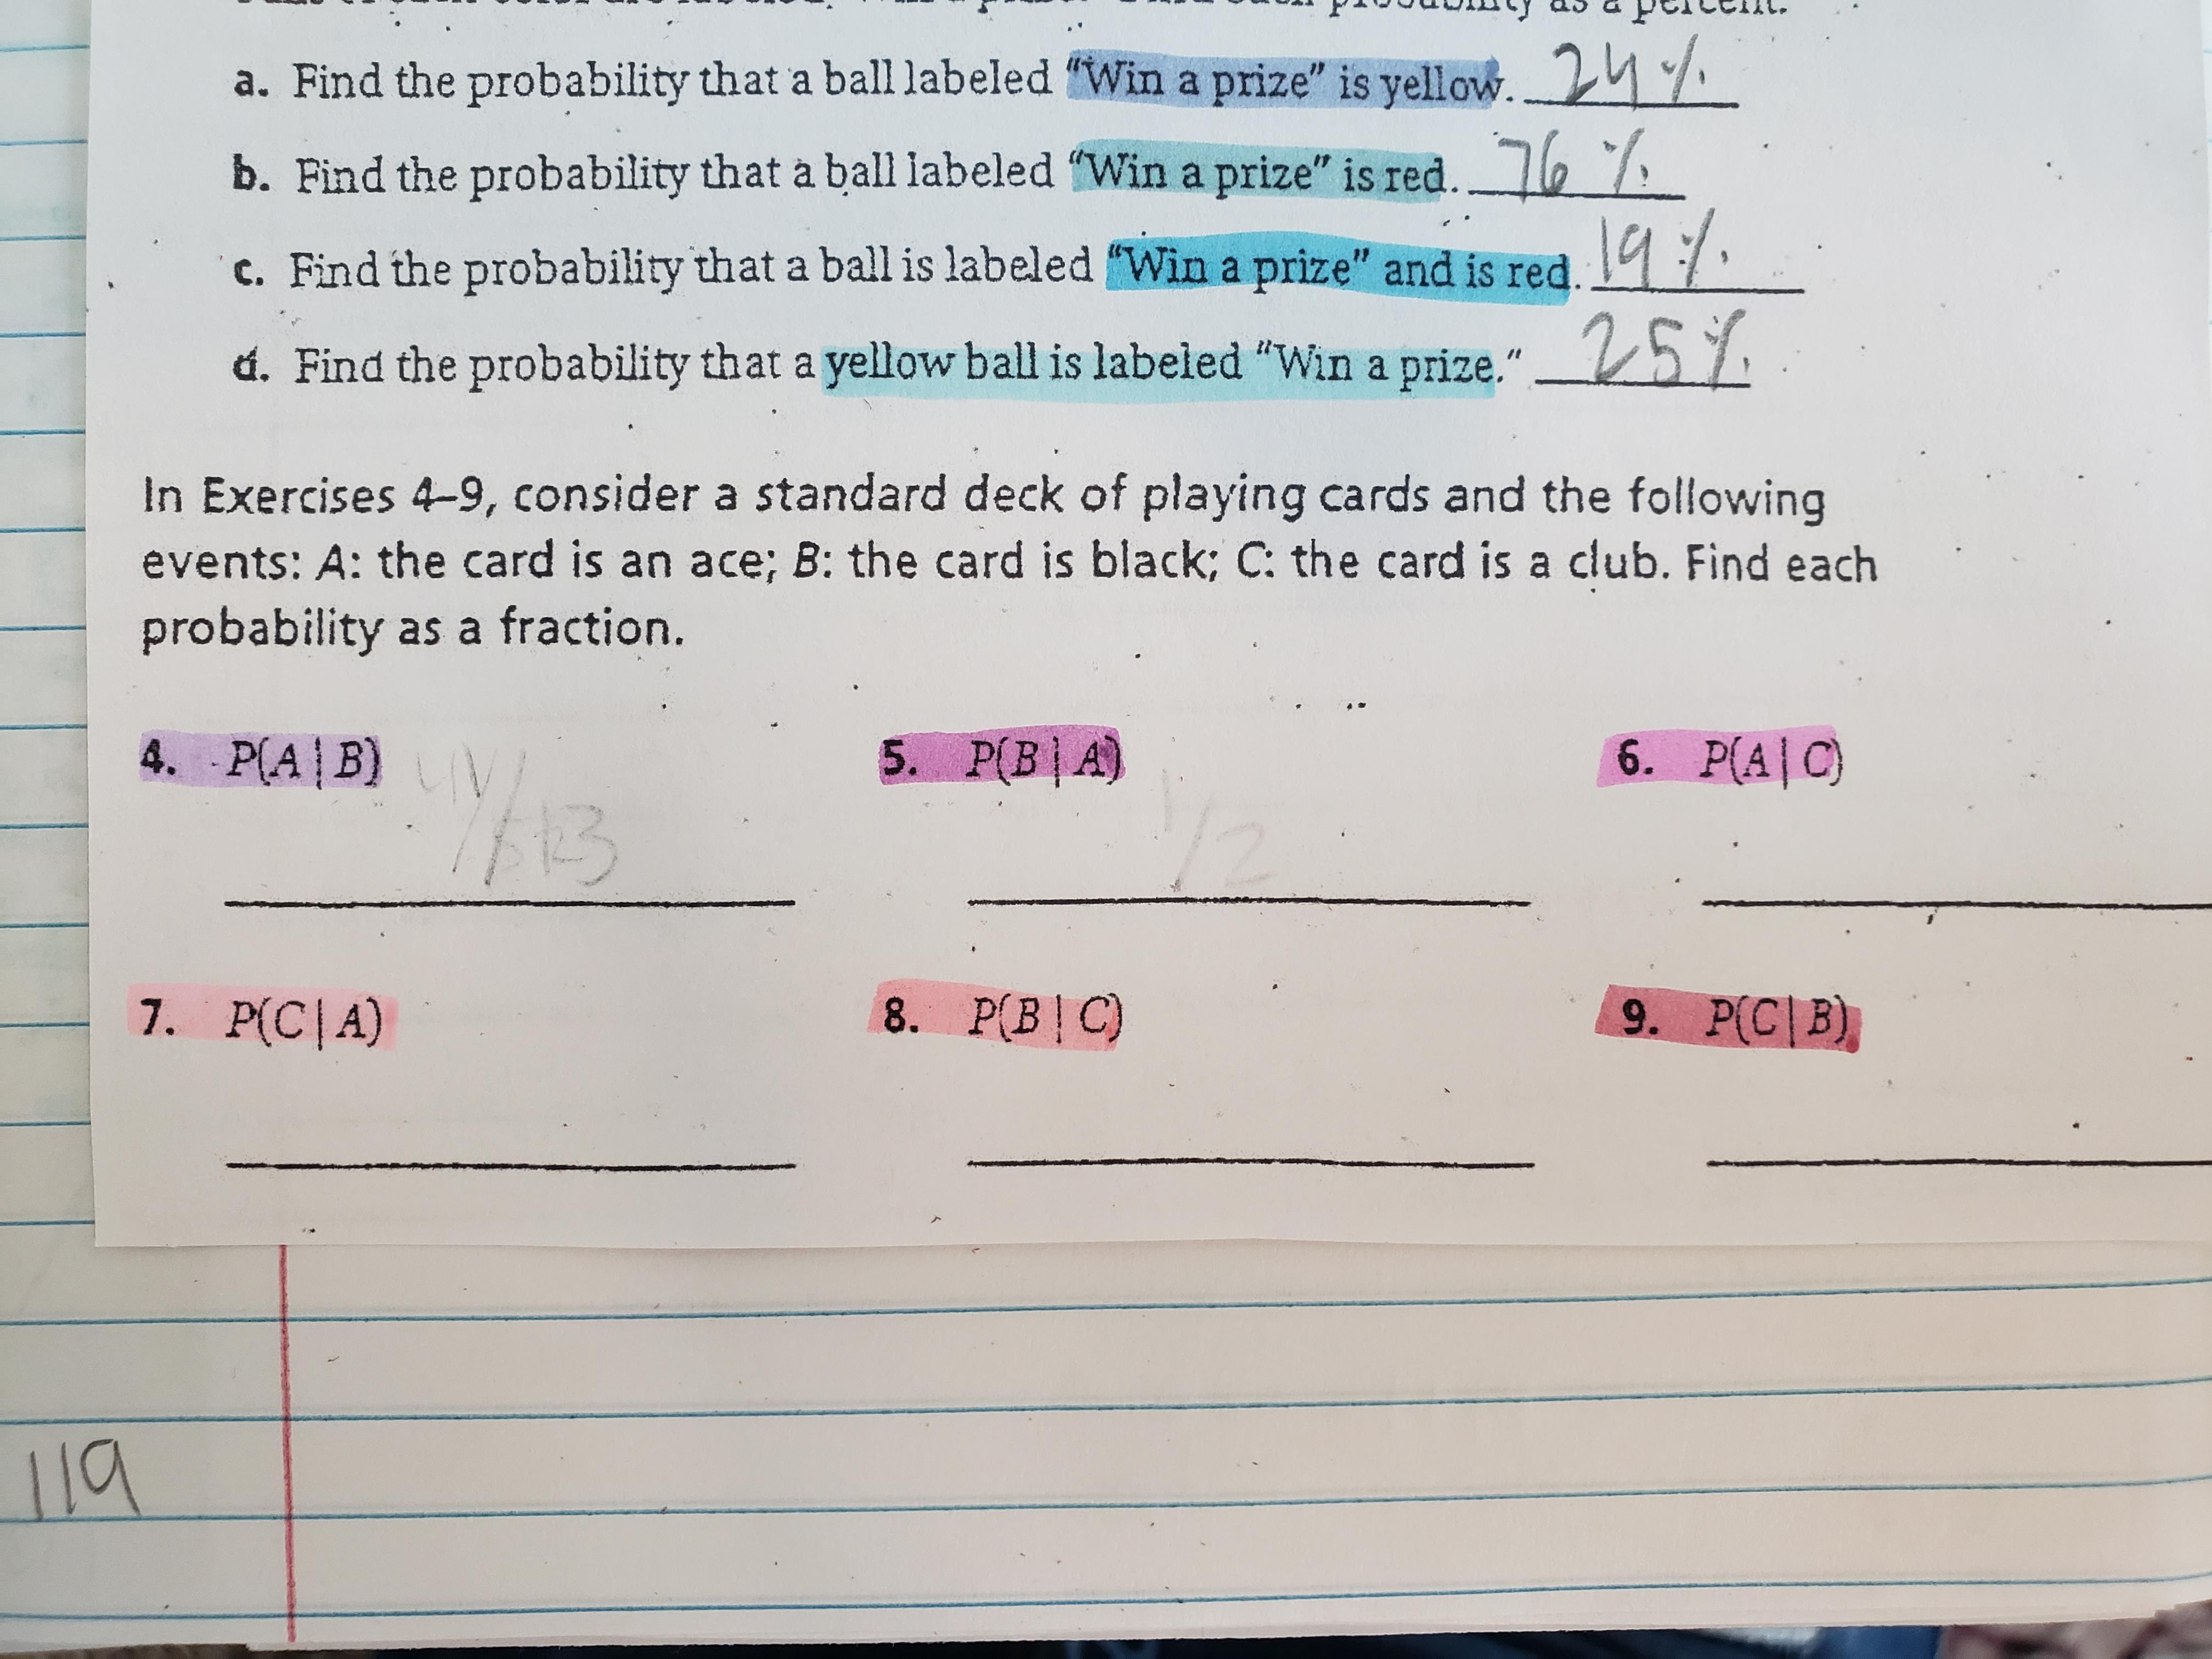 probability as a percent.
a. Find the probability that a ball labeled “Win a prize” is yellow. 24%
b. Find the probability that a ball labeled “Win a prize” is red. 76%
c. Find the probability that a ball is labeled “Win a prize” and is red. 19%
d. Find the probability that a yellow ball is labeled “Win a prize.” 25%
In Exercises 4–9, consider a standard deck of playing cards and the following
events: A: the card is an ace; B: the card is black; C: the card is a club. Find each
probability as a fraction.
4. P(A|B) 5. P(B|A) 1/2 6. P(A|C)
7. P(C|A) 8. P(B|C) 9. P(C|B)
119